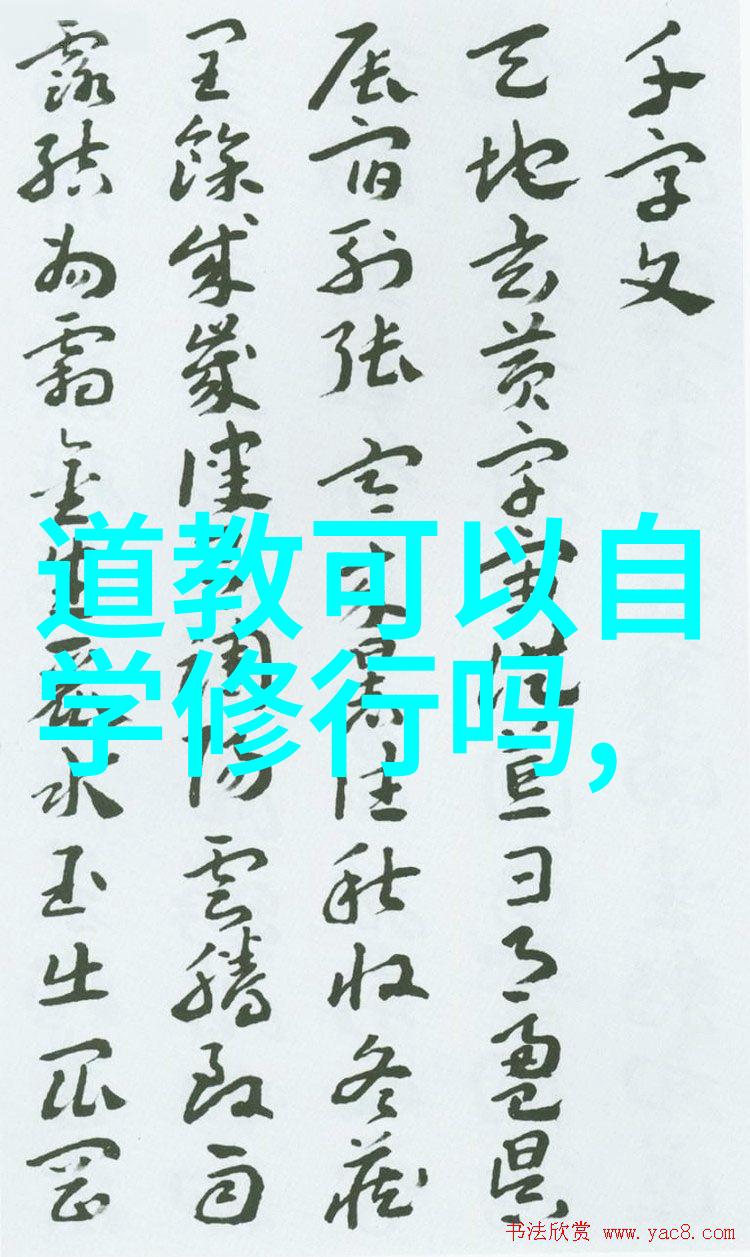 千字文
天地玄黄宇宙洪荒日月盈昃
辰宿列张寒来暑往秋收冬藏
闰餘成岁律吕调阳云腾致雨
露结为霜金生丽水玉出昆冈
道教可以自
学修行吗,
书法欣赏 www.yac8.com